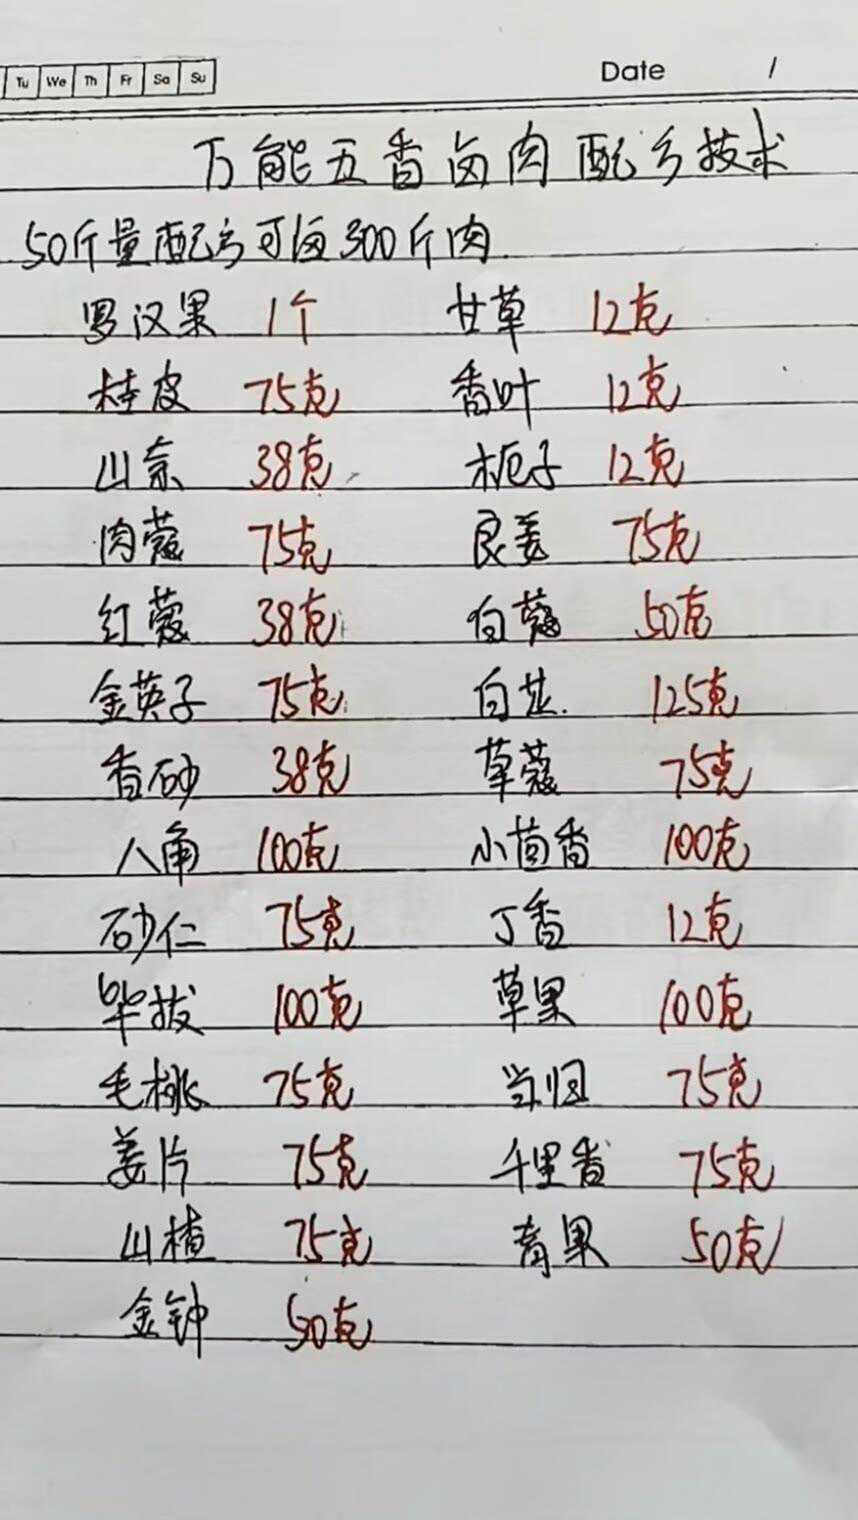 Tu We Th Fr Sa Su Date /
万能五香卤肉配方技术
50斤量配方可卤300斤肉
罗汉果 1个 甘草 12克
桂皮 75克 香叶 12克
山奈 38克 栀子 12克
肉蔻 75克 良姜 75克
红蔻 38克 白蔻 50克
金英子 75克 白芷 125克
香砂 38克 草蔻 75克
八角 100克 小茴香 100克
砂仁 75克 丁香 12克
毕拔 100克 草果 100克
毛桃 75克 当归 75克
姜片 75克 千里香 75克
山楂 75克 青果 50克
金钟 50克